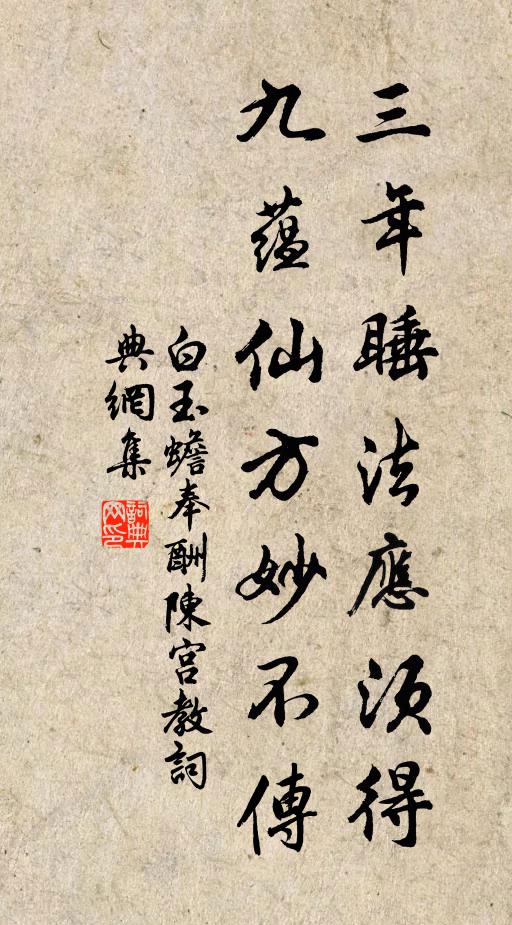 三年睡法應須得
九蘊仙方妙不傳
白玉蟾奉酬陳宮教詞
典網集
詞典
网印